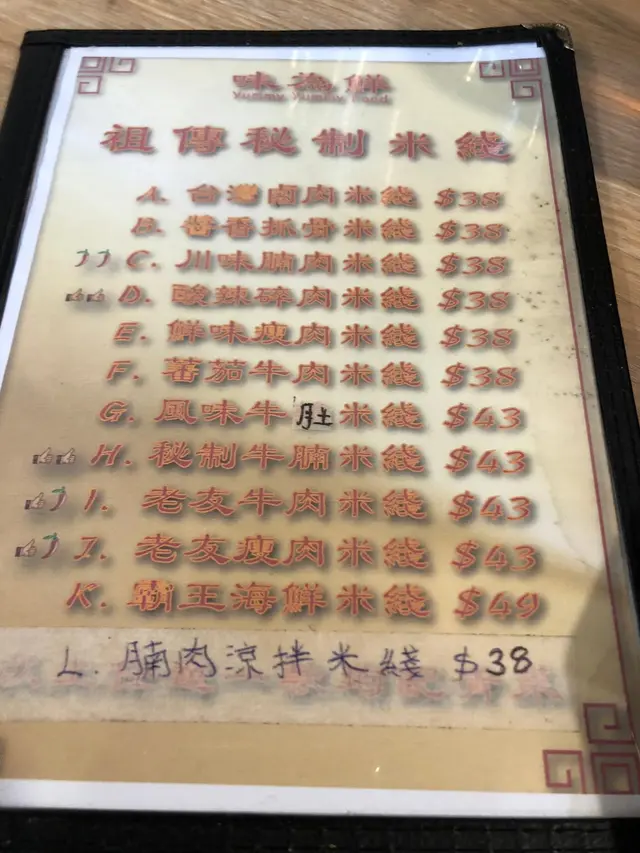 味為鮮
Yummy Yummy Food
祖傳秘制米綫
A. 台灣鹵肉米綫 $38
B. 醬香抓骨米綫 $38
C. 川味腩肉米綫 $38
D. 酸辣碎肉米綫 $38
E. 鮮味瘦肉米綫 $38
F. 蕃茄牛肉米綫 $38
G. 風味牛肚米綫 $43
H. 秘制牛腩米綫 $43
I. 老友牛肉米綫 $43
J. 老友瘦肉米綫 $43
K. 霸王海鮮米綫 $49
L. 腩肉涼拌米綫 $38